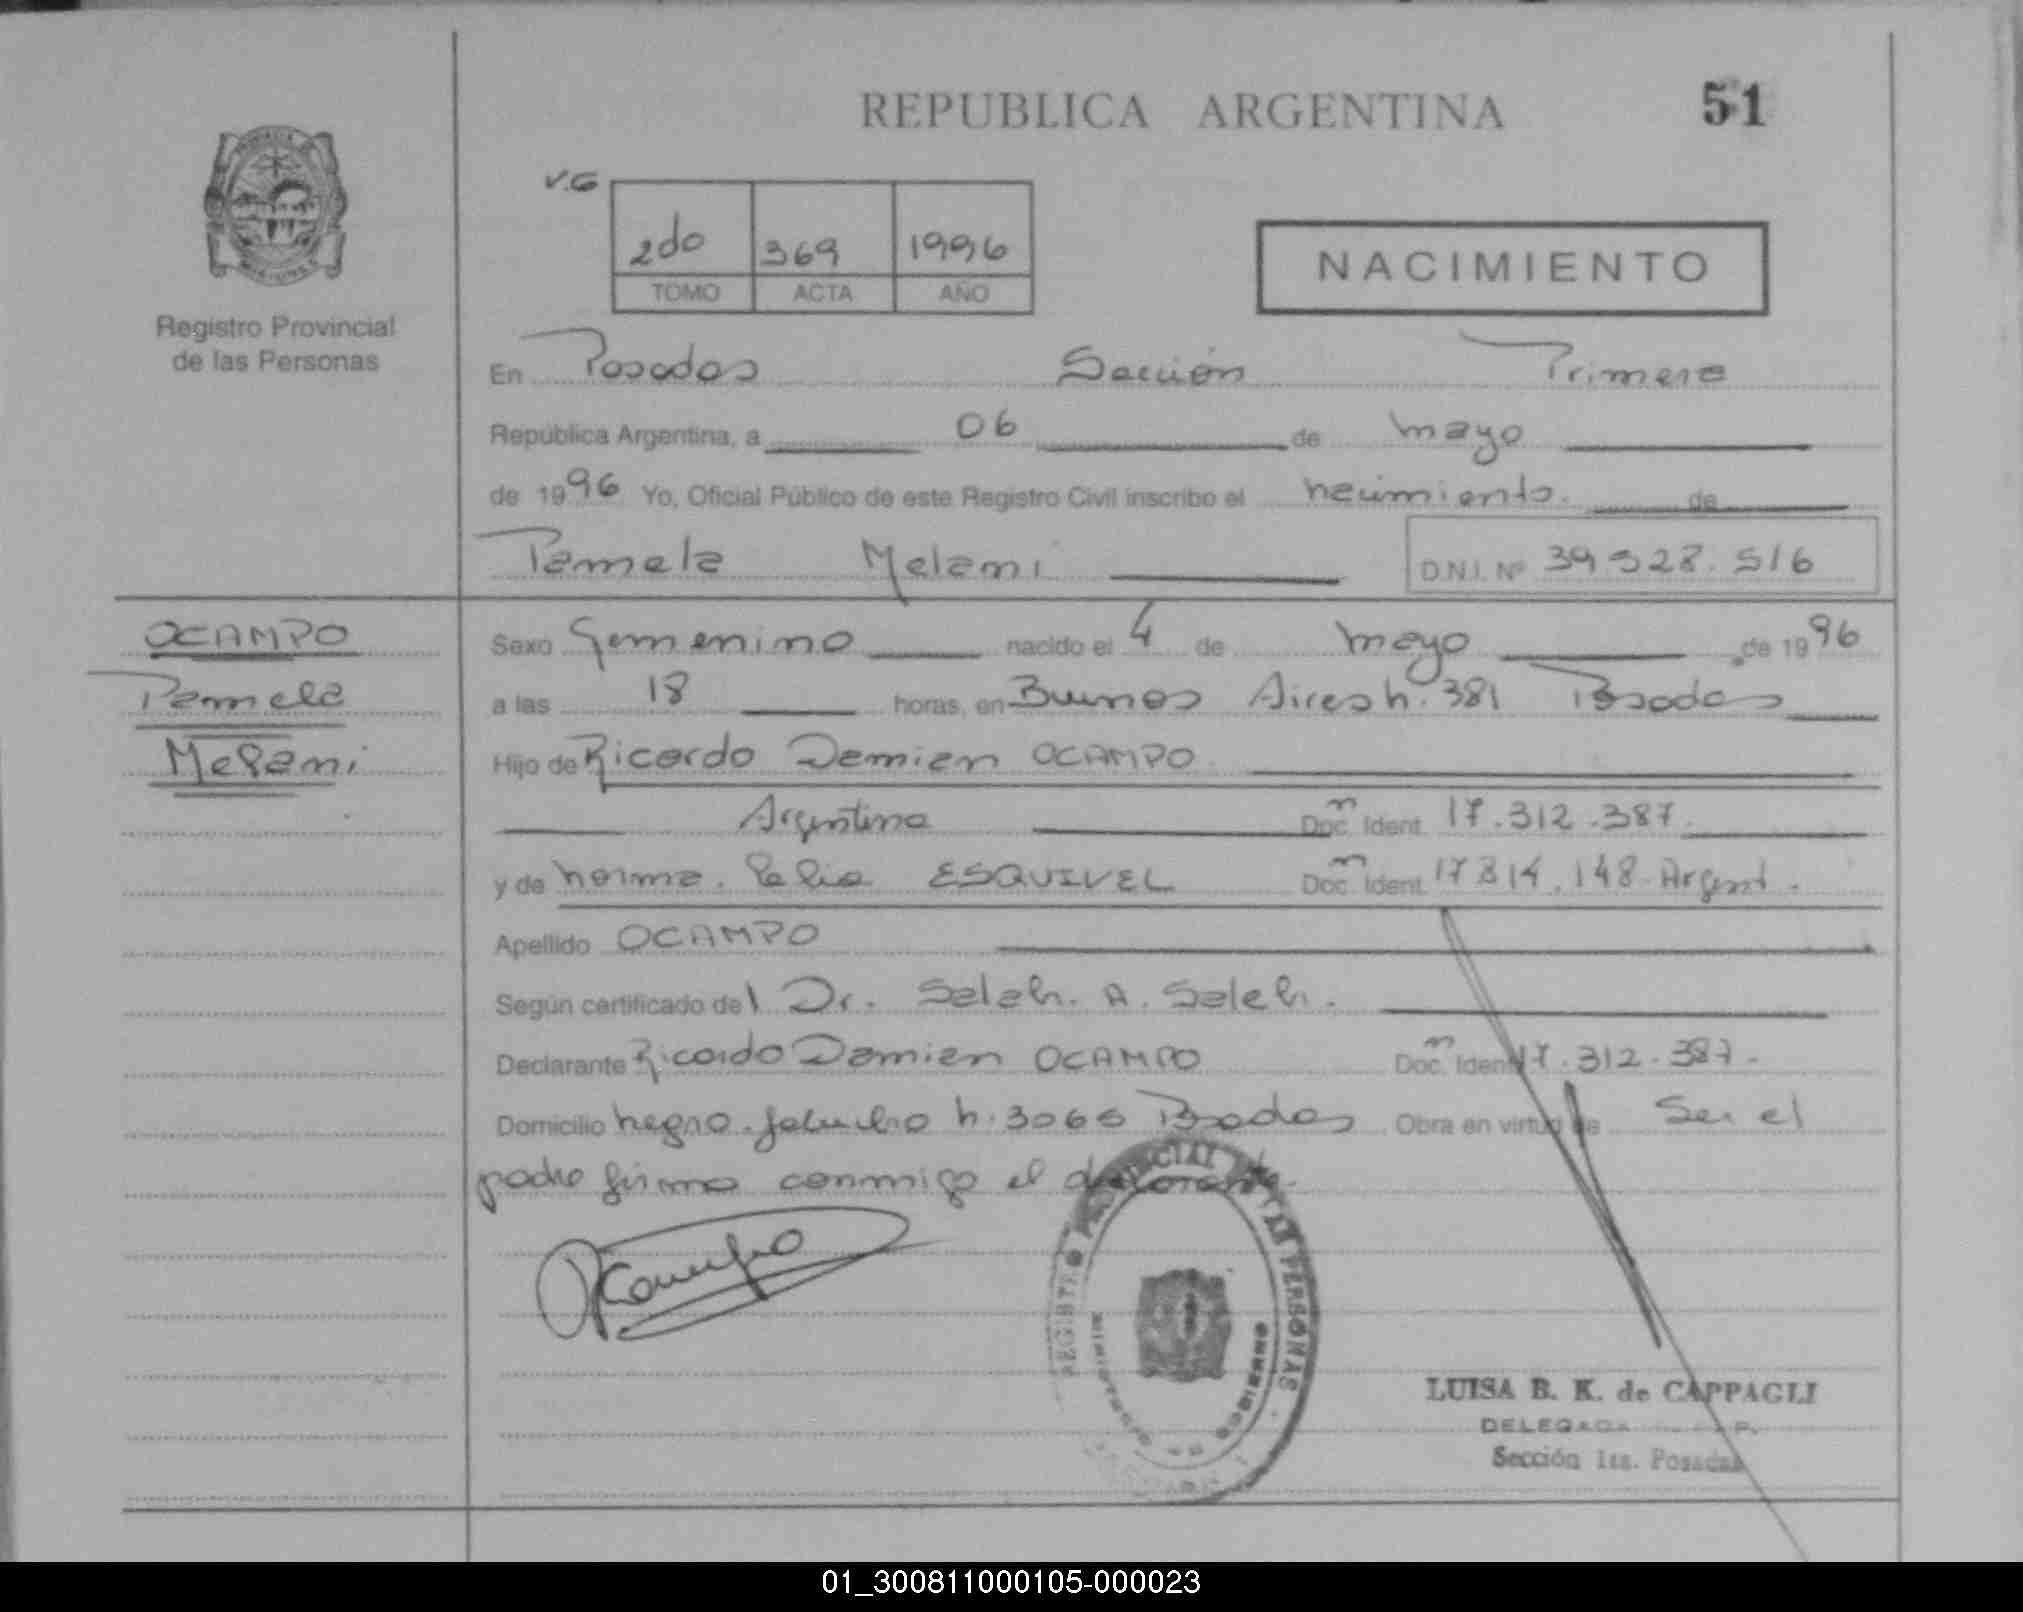 REPUBLICA ARGENTINA
51
V.G
2do 369 1996
TOMO ACTA AÑO
NACIMIENTO
Registro Provincial
de las Personas
En Posadas Sección Primera
República Argentina, a 06 de mayo
de 1996 Yo, Oficial Público de este Registro Civil inscribo el nacimiento. de
Pamela Melani D.N.I. Nº 39.528.516
OCAMPO
Pamela
Melani
Sexo Femenino nacido el 4 de mayo de 1996
a las 18 horas, en Buenos Aires n. 381 Posadas
Hijo de Ricardo Damian OCAMPO
Argentino Doc. Ident. 17.312.387.
y de norma. ESQUIVEL Doc. Ident. 17814.148 Argent.
Apellido OCAMPO
Según certificado del Dr. Saleh. A. Saleh.
Declarante Ricardo Damian OCAMPO Doc. Ident. 17.312.387.
Domicilio negro. falucho n. 3066 Posadas Obra en virtud de Ser el
padre firma conmigo el declarante.
Ocampo
REGISTRO PROVINCIAL DE LAS PERSONAS
MINISTERIO DE GOBIERNO
LUISA B. K. de CAPPAGLI
DELEGADA
Sección 1ra. Posadas
01_300811000105-000023